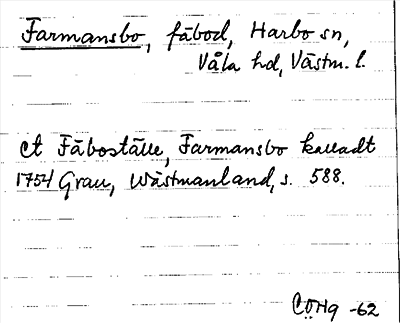 Farmansbo, fäbod, Harbo sn,
Våla hd, Västm. l.
et Fäboställe, Farmansbo kalladt
1754 Grau, Wästmanland, s. 588.
CÖHg -62